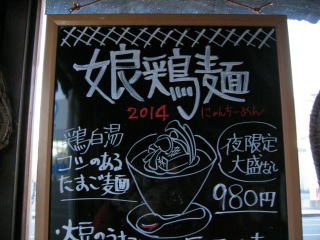 娘鶏麺
2014 にゃんちーめん
鶏白湯
コシのある
たまご麺
夜限定
大盛なし
980円
・大豆のうま